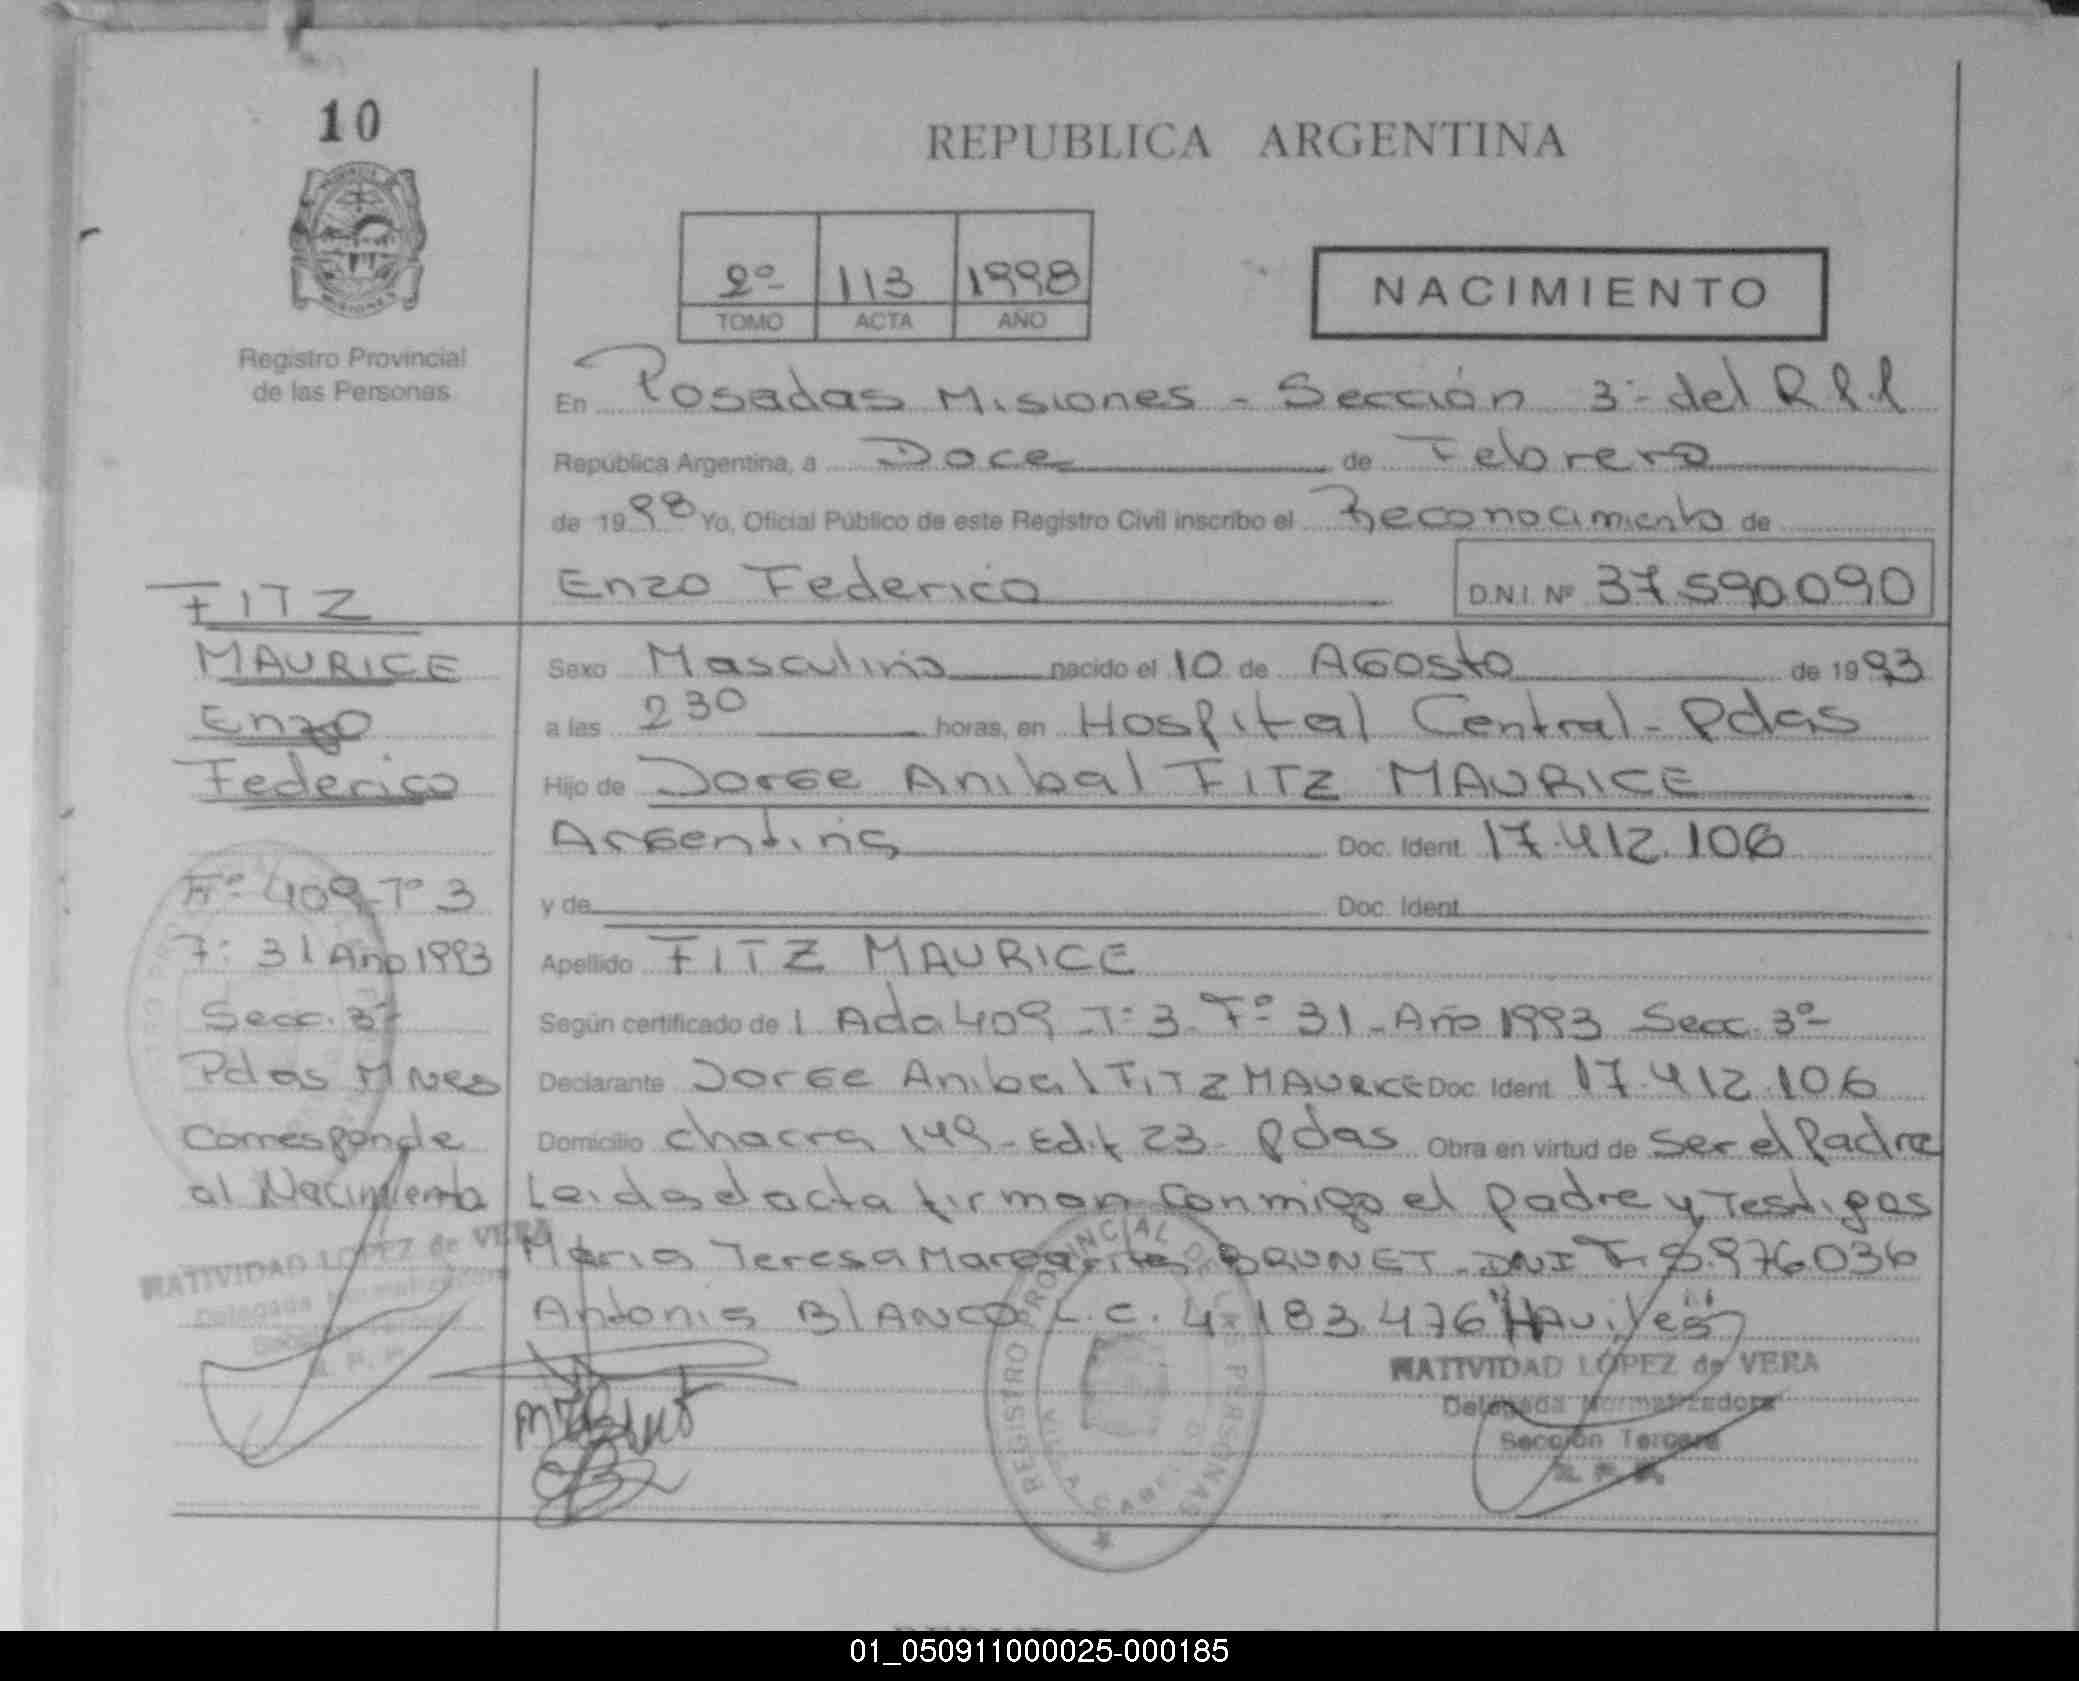 10
Registro Provincial
de las Personas
REPUBLICA ARGENTINA
2º 113 1998
TOMO ACTA AÑO
NACIMIENTO
En Posadas Misiones - Sección 3ª del R.P.P
República Argentina, a Doce de Febrero
de 1998 Yo, Oficial Público de este Registro Civil inscribo el Reconocimiento de
Enzo Federico D.N.I. Nº 37.590.090
Sexo Masculino nacido el 10 de AGosto de 1993
a las 2 30 horas, en Hospital Central - Pdas
Hijo de JorGe Anibal FITZ MAURICE
ArGentino Doc. Ident. 17.412.106
y de Doc. Ident.
Apellido FITZ MAURICE
Según certificado de 1 Acta 409 - Tº 3 - Fº 31 - Año 1993 Secc. 3ª
Declarante JorGe Anibal FITZ MAURICE Doc. Ident. 17.412.106
Domicilio chacra 149 - Edif 23 - Pdas Obra en virtud de Ser el Padre
Leida el acta firman conmigo el padre y Testigos
Maria Teresa Margarita BRUNET - DNI F. 5.976.036
Antonia BlANCO L.C. 4.183.476
NATIVIDAD LOPEZ de VERA
Delegada Normalizadora
Sección Tercera
REGISTRO PROVINCIAL DE LAS PERSONAS
FITZ
MAURICE
Enzo
Federico
409 - Tº 3
Fº 31 Año 1993
Secc. 3ª
Pdas Mnes
Corresponde
al Nacimiento
NATIVIDAD LOPEZ de VERA
Delegada Normalizadora
01_050911000025-000185